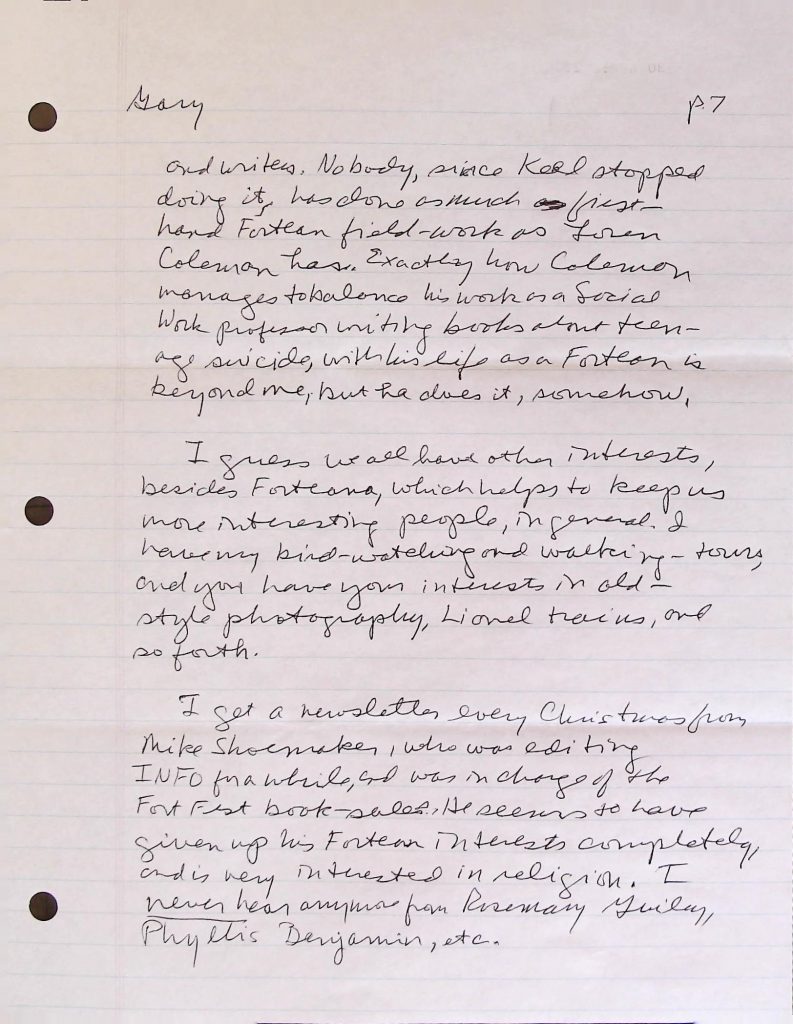 Gary p.7
and writers. Nobody, since Keel stopped
doing it, has done as much first-
hand Fortean field-work as Loren
Coleman has. Exactly how Coleman
manages to balance his work as a Social
Work professor writing books about teen-
age suicide, with his life as a Fortean is
beyond me, but he does it, somehow.
I guess we all have other interests,
besides Forteana, which helps to keep us
more interesting people, in general. I
have my bird-watching and walking-tours,
and you have your interests in old-
style photography, Lionel trains, and
so forth.
I get a newsletter every Christmas from
Mike Shoemaker, who was editing
INFO for a while, and was in charge of the
Fort Fest book-sales. He seems to have
given up his Fortean interests completely,
and is very interested in religion. I
never hear anymore from Rosemary Guiley,
Phyllis Benjamin, etc.